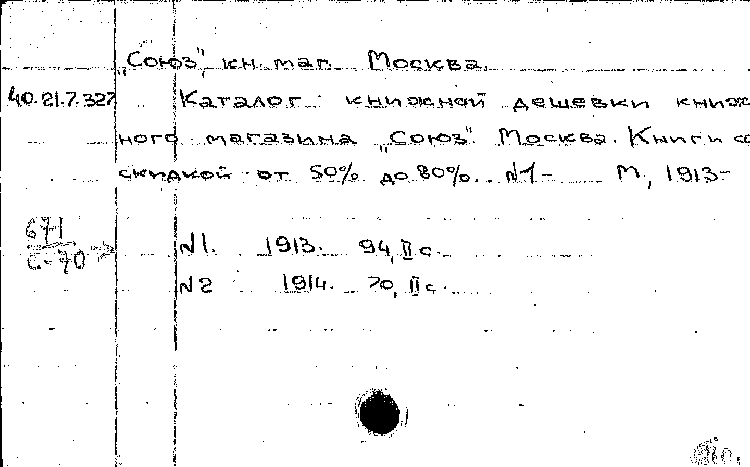 „Союз", кн. маг. Москва.
40.21.7.327 Каталог книжной дешевки книж-
ного магазина „Союз". Москва. Книги со
скидкой от 50% до 80%. №1- М., 1913-
671
С-70
№1. 1913. 94, II с.
№2 1914. 70, II с.